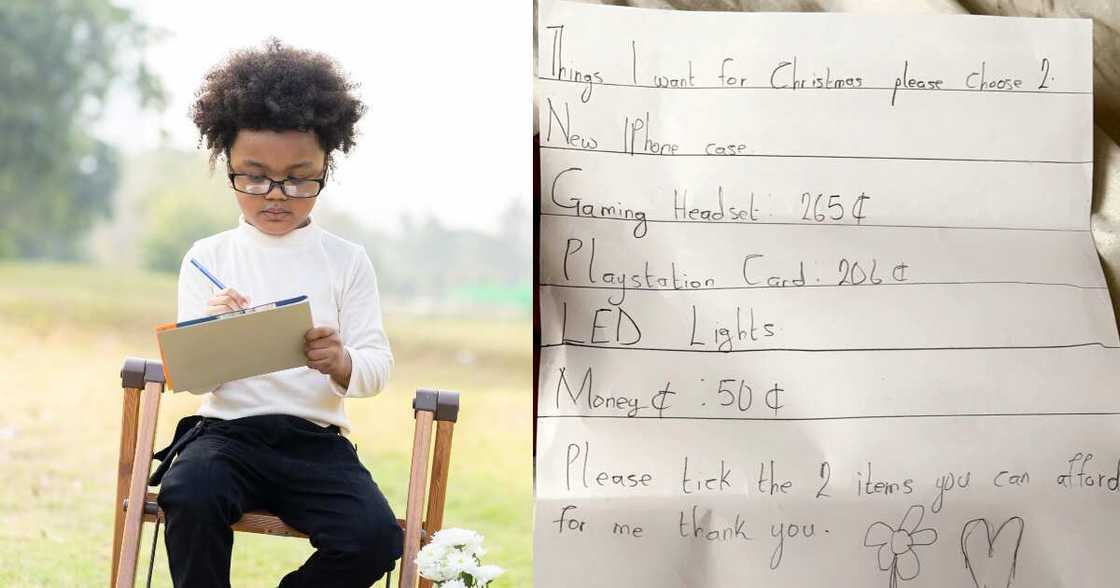 Things I want for Christmas please choose 2.
New IPhone case.
Gaming Headset: 265₵
Playstation Card: 206₵
LED Lights
Money₵ : 50₵
Please tick the 2 items you can afford
for me thank you.